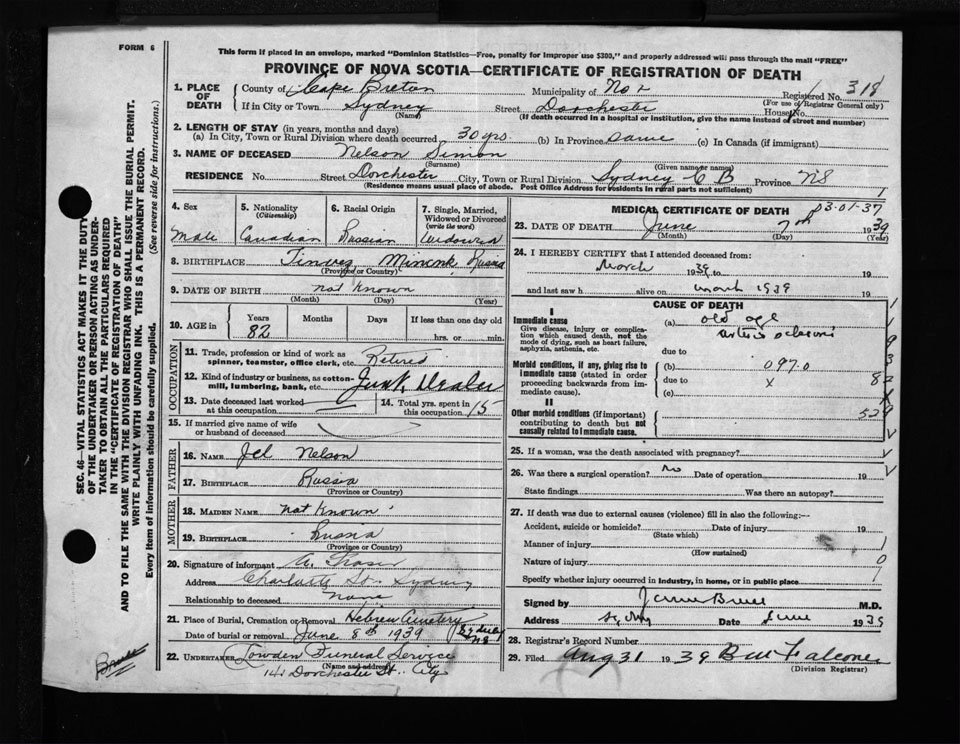 FORM 6
This form if placed in an envelope, marked "Dominion Statistics—Free, penalty for improper use $300," and properly addressed will pass through the mail "FREE"
PROVINCE OF NOVA SCOTIA—CERTIFICATE OF REGISTRATION OF DEATH
1. PLACE OF DEATH County of Cape Breton Municipality of No 2 Registered No. 318
(For use of Registrar General only)
If in City or Town Sydney Street Dorchester House No.
(Name) (If death occurred in a hospital or institution, give the name instead of street and number)
2. LENGTH OF STAY (in years, months and days)
(a) In City, Town or Rural Division where death occurred 30 yrs. (b) In Province same (c) In Canada (if immigrant)
3. NAME OF DECEASED Nelson Simon
(Surname) (Given name or names)
RESIDENCE No. Street Dorchester City, Town or Rural Division Sydney C B Province NS
(Residence means usual place of abode. Post Office Address for residents in rural parts not sufficient)
4. Sex Male
5. Nationality (Citizenship) Canadian
6. Racial Origin Russian
7. Single, Married, Widowed or Divorced (write the word) Widowed
8. BIRTHPLACE Russia
(Province or Country)
9. DATE OF BIRTH not known
(Month) (Day) (Year)
10. AGE in Years 82 Months Days If less than one day old hrs. or min.
OCCUPATION
11. Trade, profession or kind of work as spinner, teamster, office clerk, etc. Retired
12. Kind of industry or business, as cotton-mill, lumbering, bank, etc. Junk Dealer
13. Date deceased last worked at this occupation
14. Total yrs. spent in this occupation 15
15. If married give name of wife or husband of deceased
FATHER
16. Name Nelson
17. Birthplace Russia
(Province or Country)
MOTHER
18. Maiden Name not known
19. Birthplace Russia
(Province or Country)
20. Signature of informant A. Fraser
Address Charlotte St. Sydney
Relationship to deceased none
21. Place of Burial, Cremation or Removal Hebrew Cemetery Sydney NS
Date of burial or removal June 8th 1939
22. Undertaker Lowden Funeral Service
(Name and address)
141 Dorchester St. City
MEDICAL CERTIFICATE OF DEATH
23. DATE OF DEATH June 7th 1939
(Month) (Day) (Year)
24. I HEREBY CERTIFY that I attended deceased from:
March 1939 to 19
and last saw h alive on March 1939 19
CAUSE OF DEATH
I
Immediate cause
Give disease, injury or complication which caused death, not the mode of dying, such as heart failure, asphyxia, asthenia, etc.
(a) old age
arterio sclerosis
due to
Morbid conditions, if any, giving rise to immediate cause (stated in order proceeding backwards from immediate cause)
(b) 097.0
due to x
(c)
II
Other morbid conditions (if important) contributing to death but not causally related to immediate cause.
25. If a woman, was the death associated with pregnancy?
26. Was there a surgical operation? No Date of operation 19
State findings Was there an autopsy?
27. If death was due to external causes (violence) fill in also the following:—
Accident, suicide or homicide? Date of injury 19
(State which)
Manner of injury
(How sustained)
Nature of injury
Specify whether injury occurred in industry, in home, or in public place
Signed by M.D.
Address Sydney Date June 1939
28. Registrar's Record Number
29. Filed Aug 31 1939 Falconer
(Division Registrar)
SEC. 46—VITAL STATISTICS ACT MAKES IT THE DUTY
OF THE UNDERTAKER OR PERSON ACTING AS UNDER-
TAKER TO OBTAIN ALL THE PARTICULARS REQUIRED
IN THE "CERTIFICATE OF REGISTRATION OF DEATH"
AND TO FILE THE SAME WITH THE DIVISION REGISTRAR WHO SHALL ISSUE THE BURIAL PERMIT.
WRITE PLAINLY WITH UNFADING INK. THIS IS A PERMANENT RECORD.
Every item of information should be carefully supplied. (See reverse side for instructions.)